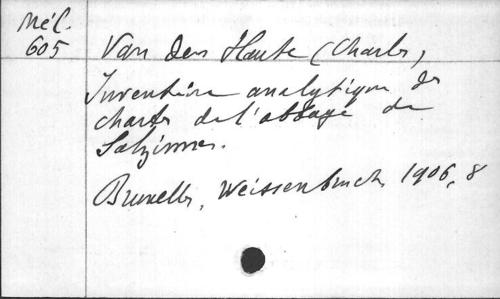 Mél.
605
Van den Haute (Charles)
Inventaire analytique des
chartes de l'abbaye de
Salzinnes.
Bruxelles, Weissenbruch, 1906, 8